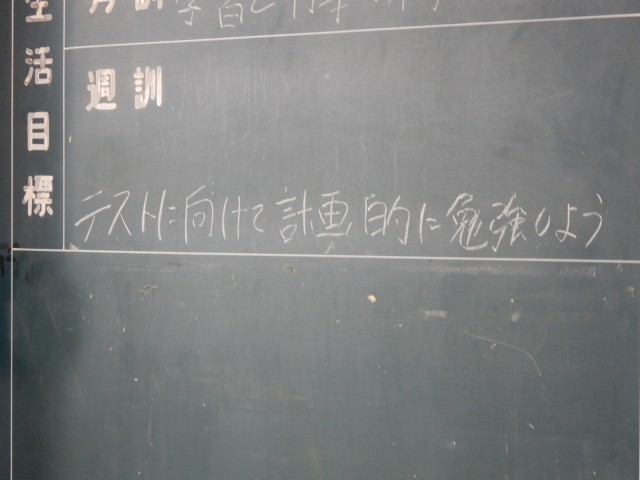 生活目標
月訓
週訓
テストに向けて計画的に勉強しよう